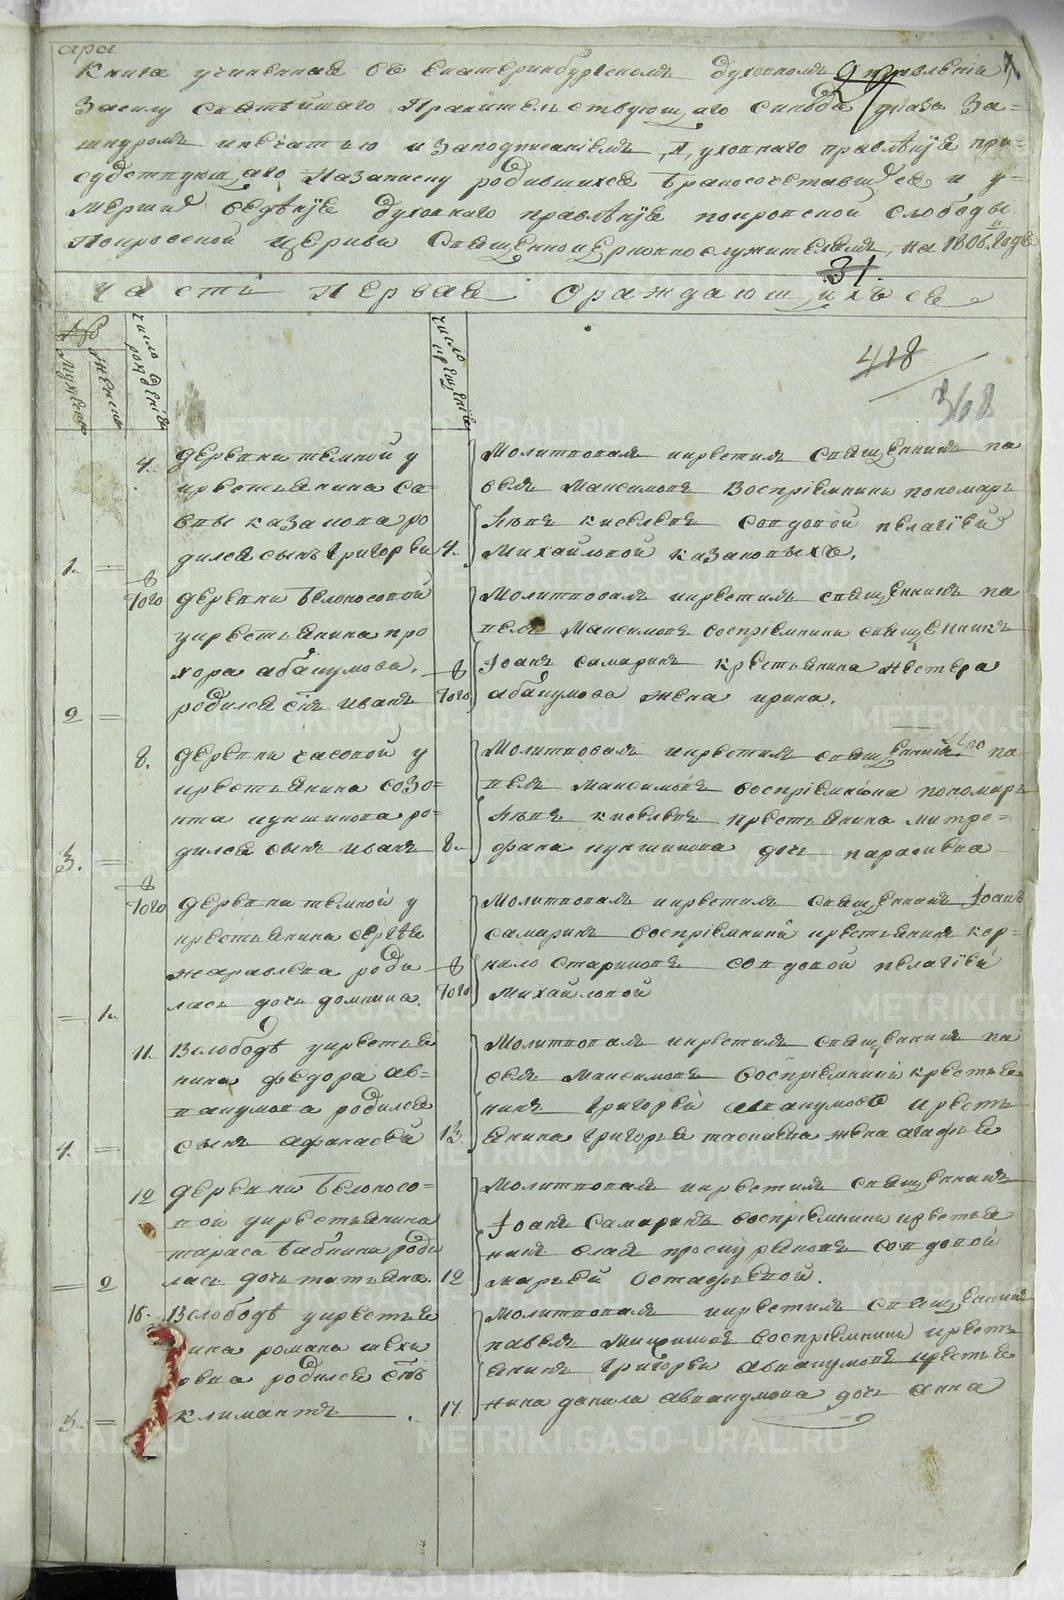 ара
Книга учиненная въ Екатеринбургскомъ духовномъ правленіи
Засилу святѣйшаго Правительствующаго Синода указа За=
шнуромъ ипечатью изаподписаніемъ, духовнаго правленія при=
судствующаго, Назаписку родившихся бракосочетавшихся и у=
мершихъ вѣдѣнія духовнаго правленія покровской слободы
Покровской церкви Священноцерковнослужителемъ, на 1806й Годъ
31.
часть Первая Ораждающихъся
418
368
мужеска
женска
число рожденія
число крещенія
4. деревни темной у
крестьянина Са=
вы казанова ро
1. = дился сынъ Григорей 4.
Молитвовалъ икрестилъ священникъ па
велъ Максимовъ Воспріемники пономарь
киселевъ совдовой пелагіей
Михайловой казановыхъ.
8 Того деревни белоносовой
укрестьянина про
хора абакумова.
2 = родился снъ иванъ 8 Того
Молитвовалъ икрестилъ священникъ па
велъ Максимовъ воспріемники священникъ
Іоанъ самаринъ крестьянина нестера
абакумова жена ирина.
8. деревни часовой у
крестьянина созо=
нта кукшинова ро=
3. = дился сынъ иванъ 8.
Молитвовалъ икрестилъ священникъ па=
велъ Максимовъ воспріемники пономарь
киселевъ крестьянина митро=
фана кукшинова дочь парасковиа
8 Того деревни темной у
крестьянина сергѣя
журавлева роди
= 1. лась дочь домнина. 8 Того
Молитвовалъ икрестилъ священникъ Іоанъ
самаринъ воспріемники крестьянинъ кор=
нило стариковъ совдовой пелагіей
Михайловой
11. Вслободѣ укрестья
нина федора ав=
вакумова родился
4. = сынъ афанасей 13.
Молитвовалъ икрестилъ священникъ па
велъ Максимовъ воспріемники крестья
нинъ григорей авакумовъ крестъ
янина григорья жена агафья
12 деревни белоносо=
вой укрестьянина
тараса бабкина роди
= 2 лась дочь татьяна. 12
Молитвовалъ икрестилъ священникъ
Іоанъ Самаринъ воспріемники крестья
нинъ проскуряковъ совдовой
марьей остафьевой.
16. Вслободѣ укрестья
нина романа
родился снъ
5. = климантъ. 17
Молитвовалъ икрестилъ священникъ
павелъ Максимовъ воспріемники крестъ
янинъ григорей авакумовъ крестья
нина данила авакумова дочь анна
METRIKI.GASO-URAL.RU